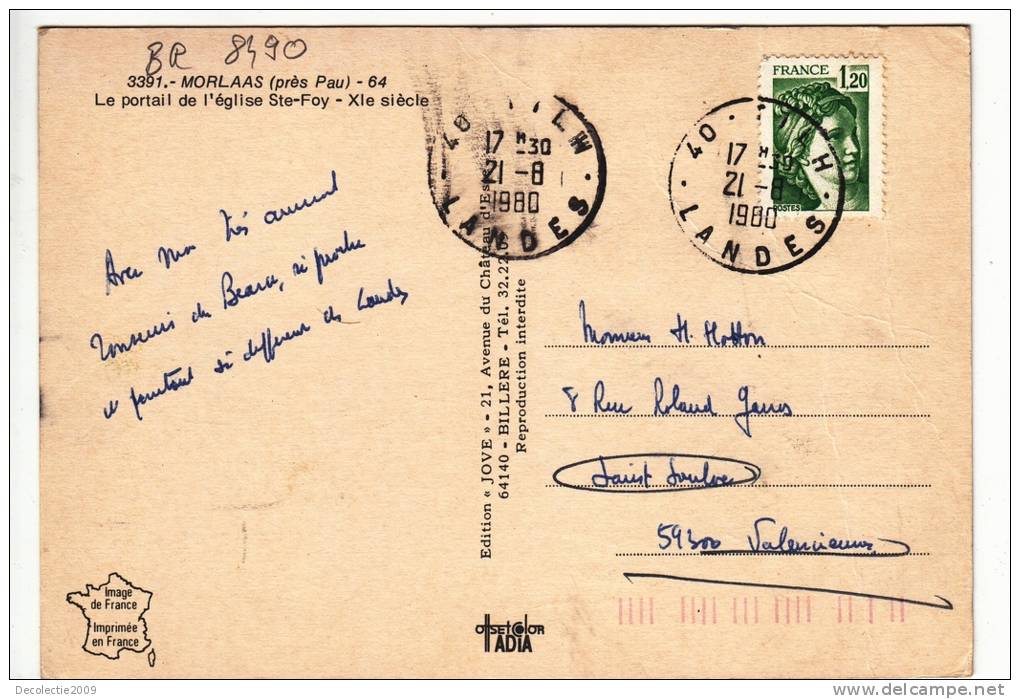 BR 8490
3391.- MORLAAS (près Pau) - 64
Le portail de l'église Ste-Foy - XIe siècle
FRANCE 1,20
POSTES
40
17 H -30
21 -8
1980
LANDES
40
17 H -30
21 -8
1980
LANDES
Avec mon très amical
souvenir du Bearn, si proche
et pourtant si différent des Landes
Edition « JOVE » - 21, Avenue du Château d'Es
64140 - BILLERE - Tél. 32.22.09
Reproduction interdite
Monsieur H. Hotton
8 Rue Roland Garros
Saint Saulve
59300 Valenciennes
Image
de France
Imprimée
en France
OffsetColOR
IADIA
Decolectie2009
www.delcampe.net